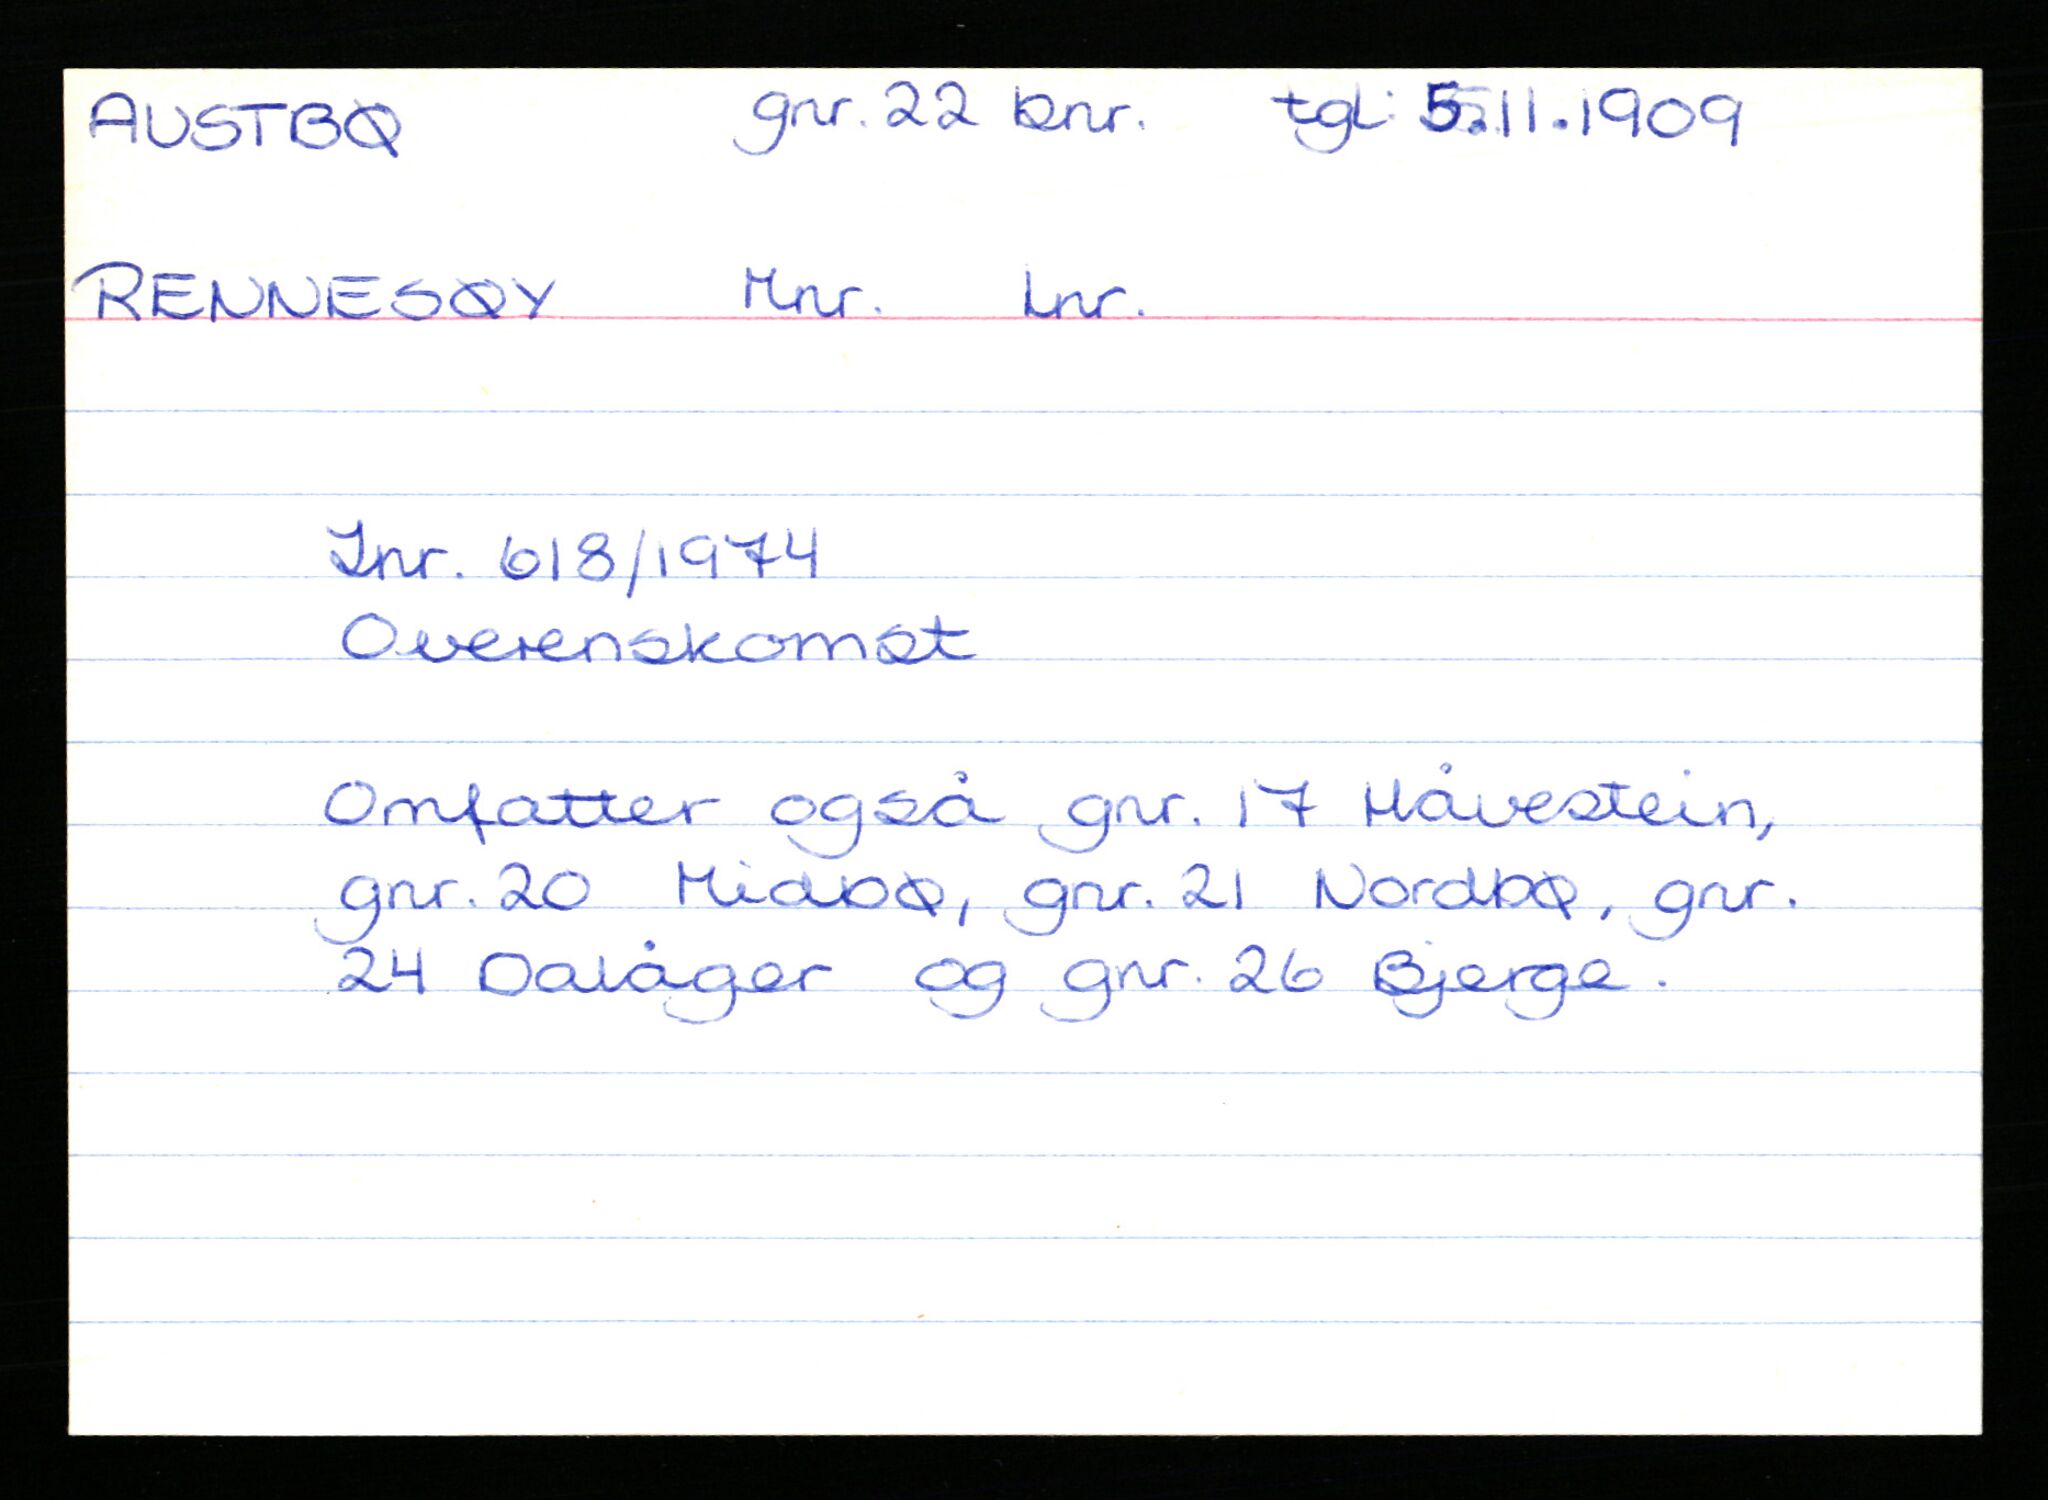 AUSTBØ gnr. 22 bnr. tgl: 5.11.1909
RENNESØY Mnr. Lnr.
Jnr. 618/1974
Overenskomst
Omfatter også gnr. 17 Håvestein,
gnr. 20 Midbø, gnr. 21 Nordbø, gnr.
24 Dalåger og gnr. 26 Bjerge.